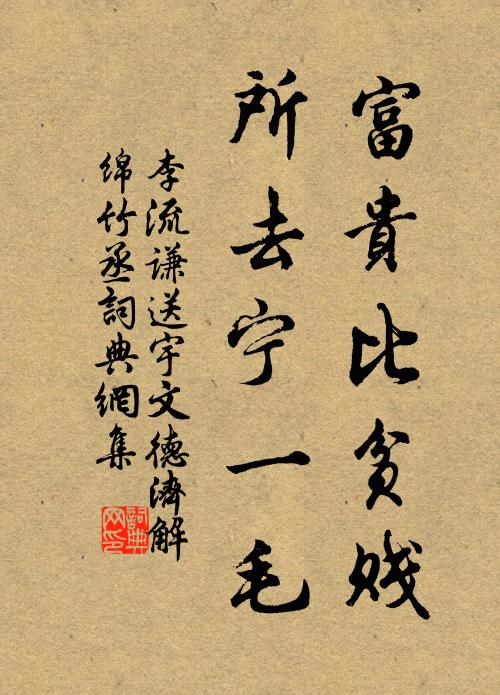 富貴比貧贱
所去宁一毛
李流謙送宇文德濟解
綿竹丞詞典網集
詞典
网印